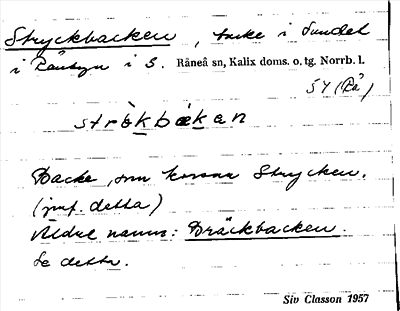 Stryckbacken, backe i Sundet
i Rånbyn i S. Råneå sn, Kalix doms. o. tg. Norrb. l.
54 (Rå)
strèkbàkan
Backe, som korsar Strycken.
(jmf. detta)
Äldre namn: Bräckbacken.
Se detta.
Siv Classon 1957